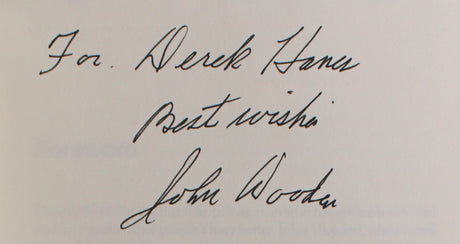 For. Derek Hanes
Best wishes
John Wooden
Foreword